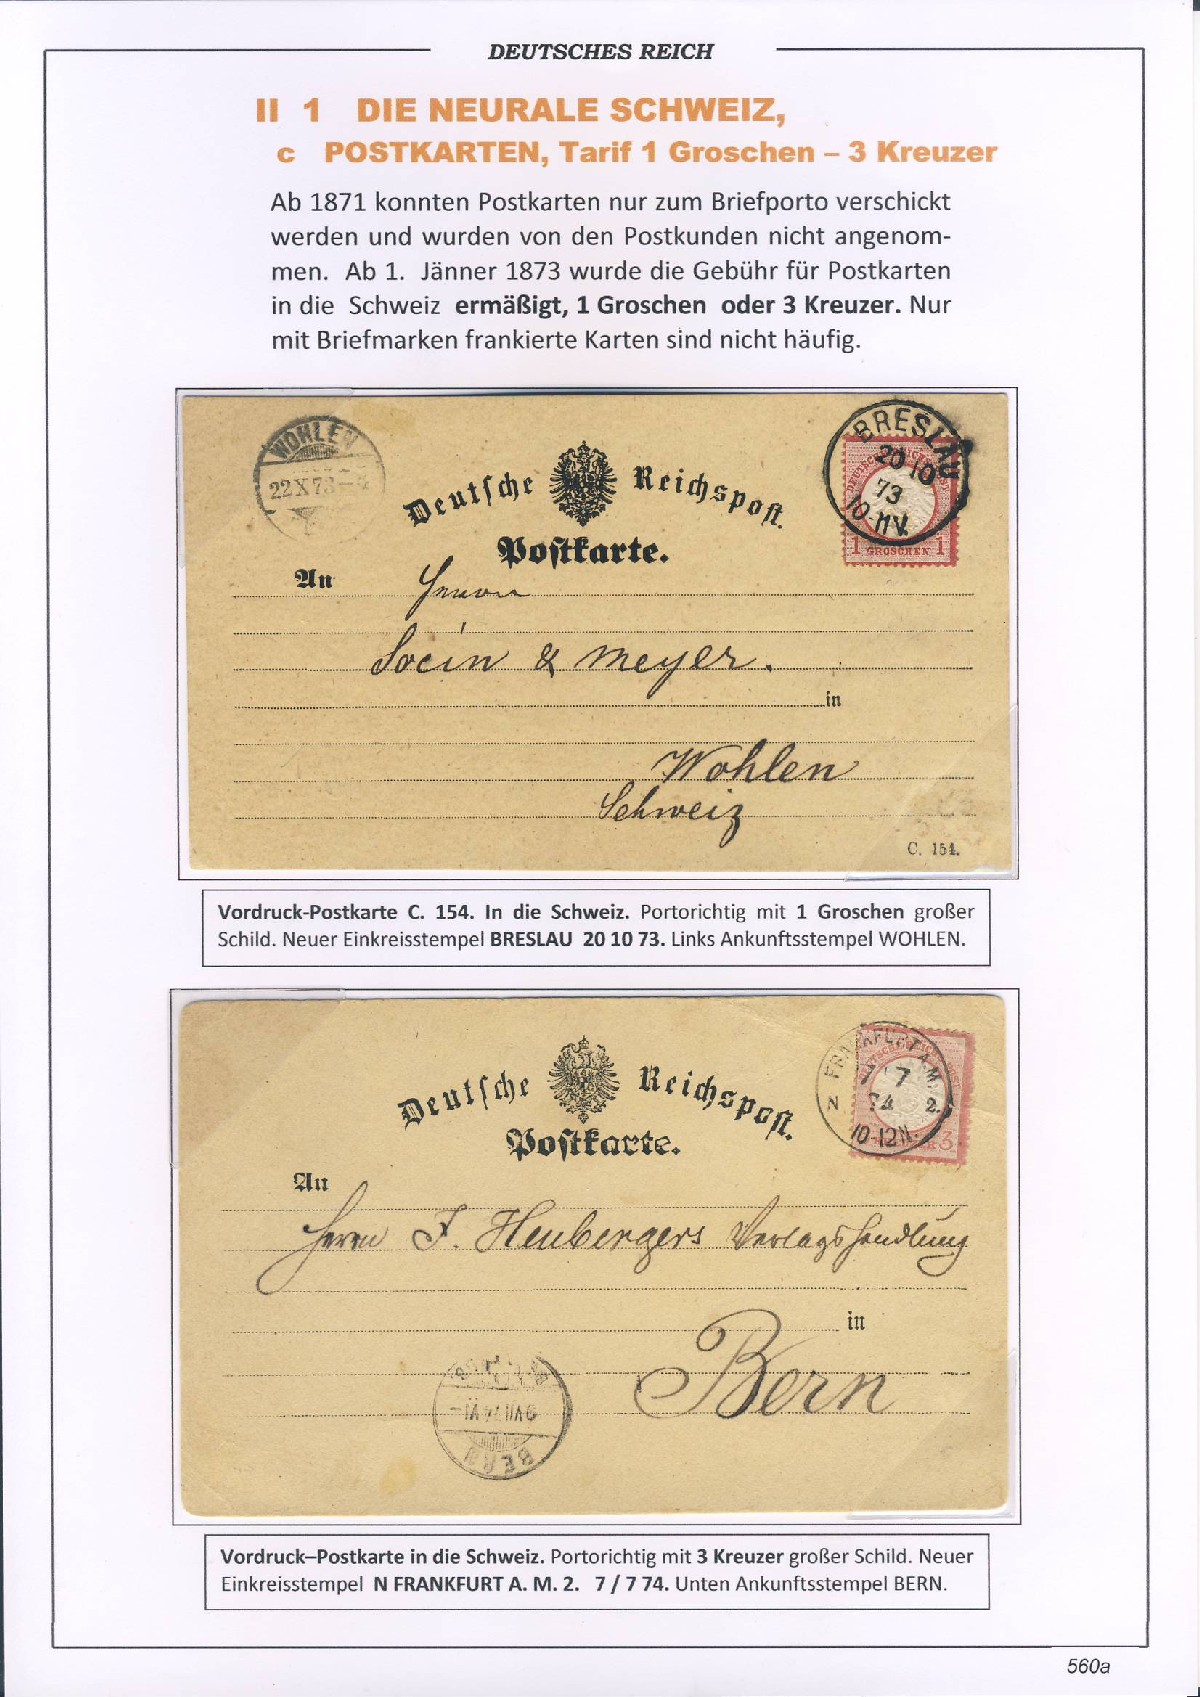 DEUTSCHES REICH
II 1 DIE NEURALE SCHWEIZ,
c POSTKARTEN, Tarif 1 Groschen – 3 Kreuzer
Ab 1871 konnten Postkarten nur zum Briefporto verschickt
werden und wurden von den Postkunden nicht angenom-
men. Ab 1. Jänner 1873 wurde die Gebühr für Postkarten
in die Schweiz ermäßigt, 1 Groschen oder 3 Kreuzer. Nur
mit Briefmarken frankierte Karten sind nicht häufig.
WOHLEN
22 X 73
BRESLAU
20 10
73
10-11 V.
1 GROSCHEN 1
Deutsche Reichspost.
Postkarte.
An
Herren
Socin & Meyer.
in
Wohlen
Schweiz
C. 154.
Vordruck-Postkarte C. 154. In die Schweiz. Portorichtig mit 1 Groschen großer
Schild. Neuer Einkreisstempel BRESLAU 20 10 73. Links Ankunftsstempel WOHLEN.
FRANKFURT A.M.
7
74
N 2.
10-12 N.
3
Deutsche Reichspost.
Postkarte.
An
Herrn J. Heubergers Verlagshandlung
in
Bern
9 VII 74 VI
BERN
Vordruck–Postkarte in die Schweiz. Portorichtig mit 3 Kreuzer großer Schild. Neuer
Einkreisstempel N FRANKFURT A. M. 2. 7 / 7 74. Unten Ankunftsstempel BERN.
560a